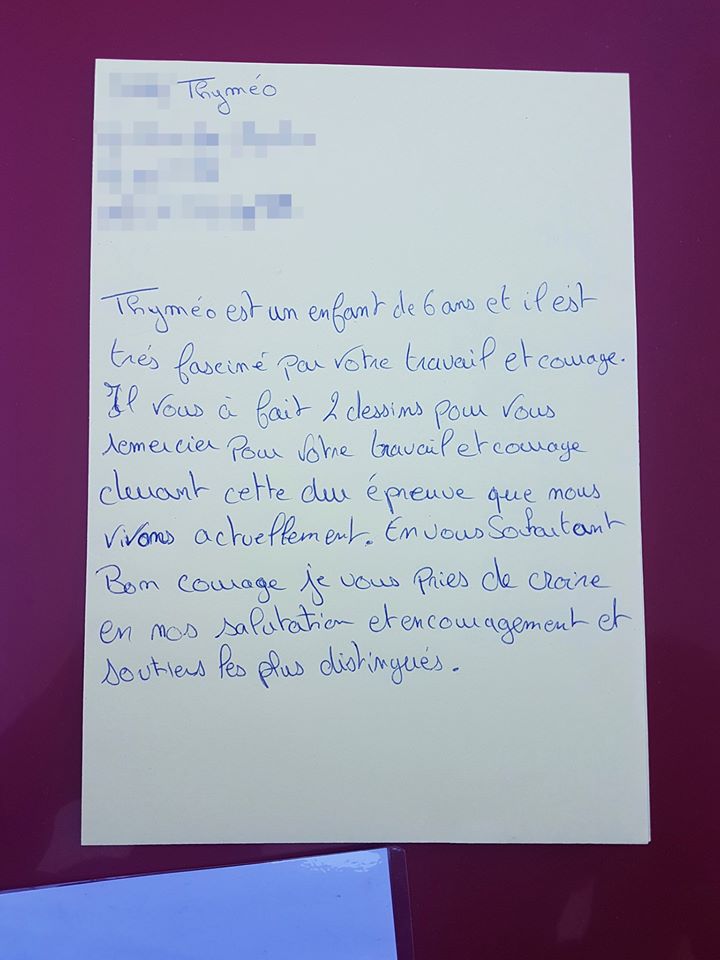 Thyméo
Thyméo est un enfant de 6 ans et il est
trés fasciné par votre travail et courage.
Il vous à fait 2 dessins pour vous
remercier pour votre travail et courage
devant cette dur épreuve que nous
vivons actuellement. En vous souhaitant
Bon courage je vous pries de croire
en nos salutation et encouragement et
soutiens les plus distingués.